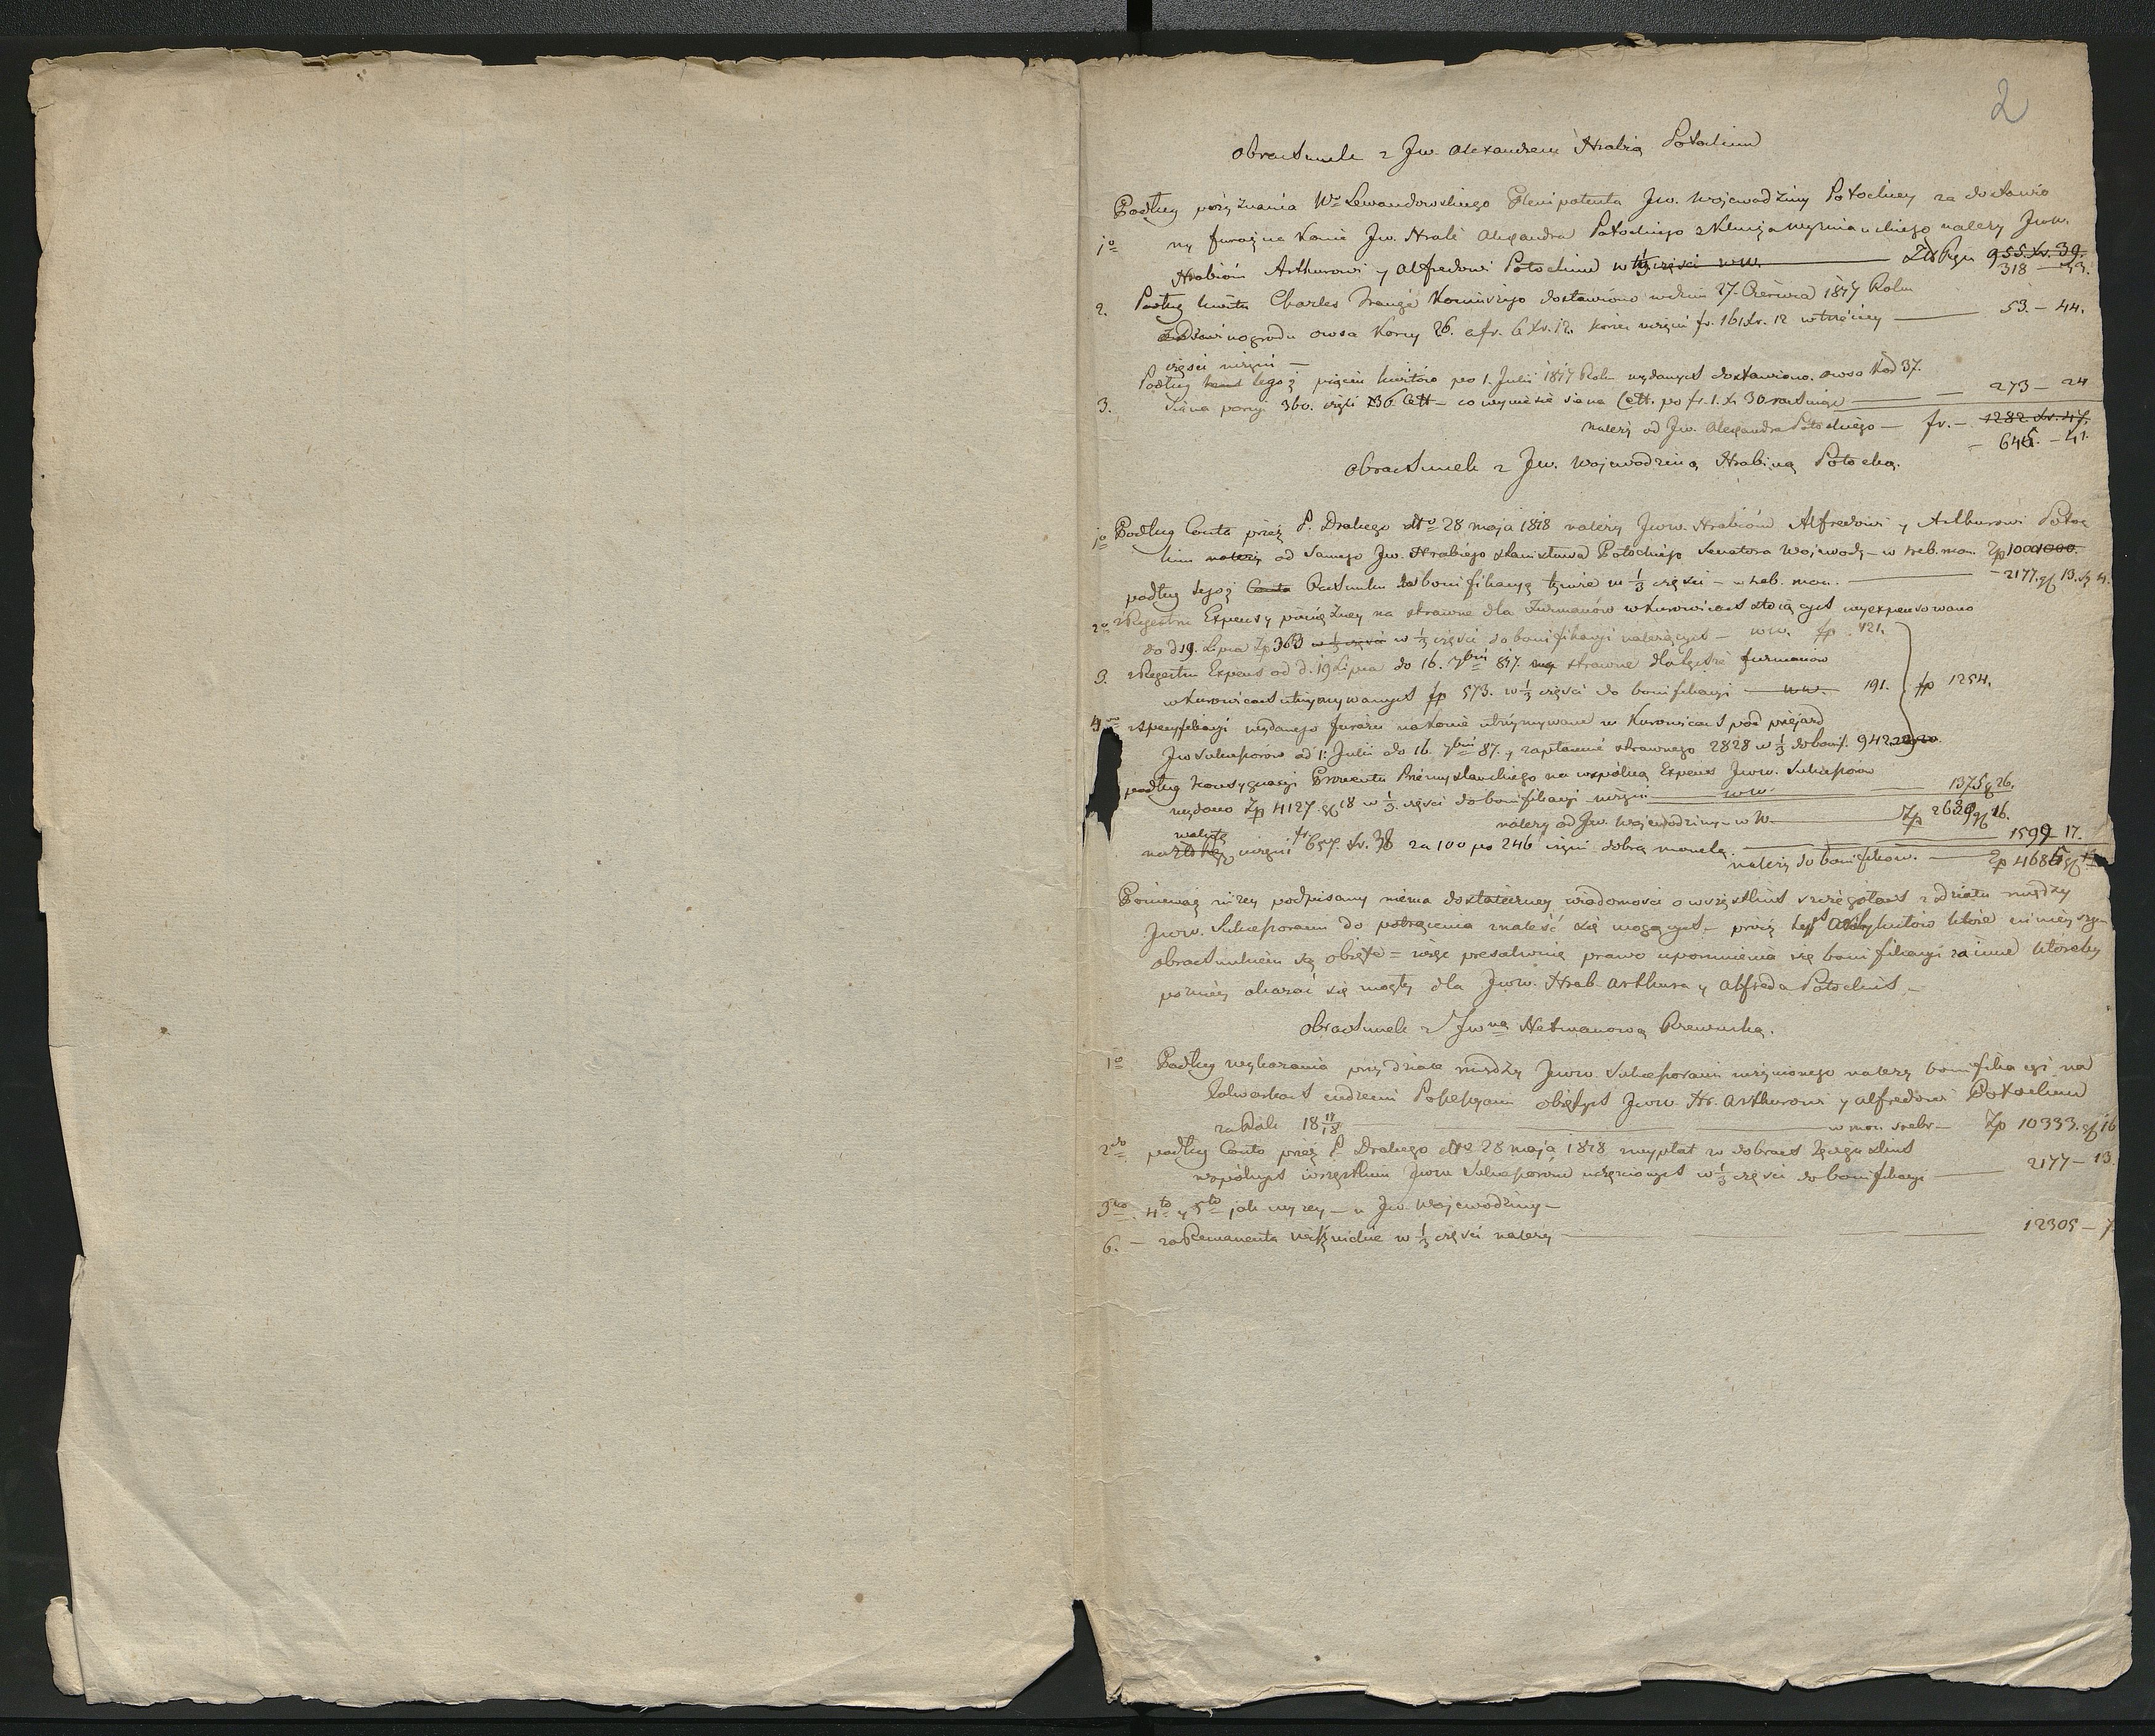 2
Obrachunek z Jw. Alexandrem Hrabią Potockim
Podług przyznania Wo Lewandowskiego Plenipotenta Jw. Wojewodziny Potockiey za dostawio
1o ny furaż na konie Jw. Hrabi Alexandra Potockiego z Klucza należy Jww.
Hrabiom Arthurowi y Alfredowi Potockim w 1/3 części ww. 955. Xr. 39.
318 — 33.
2. Podług kwitu Charles Kommissyo dostawiono w dniu 27. Czerwca 1817 Roku
owsa Korcy 26. a fr. 6 Xr. 12. korzec czyni fr. 161. Xr. 12 w trzeciey — 53. — 44.
części czyni —
Podług tegoż pięciu kwitów po 1. Julii 1817 Roku wydanych dostawiono owsa Kor 37.
3. Siana porcy. 360. czyli 36 Cett — co wyniesie siana Cett. po fr. 1. Xr 30 rachując — 273 — 24
należy od Jw. Alexandra Potockiego — fr. — 1282 Xr. 47.
— 645. — 41.
Obrachunek z Jw. Wojewodziną Hrabiną Potocką.
1o Podług Conta przez P. Drakego dto 28 maja 1818 należy Jww. Hrabiom Alfredowi y Arthurowi Potoc
kim należy od samego Jw. Hrabiego Stanisława Potockiego Senatora Wojewody — w sreb. mon. Zp
podług tegoż Conta Rachunku bonifikacyę w 1/3 części — w sreb. mon. — 2177. gł 13.
2o z Regestru Expensy pieniężney na strawne dla furmanów w Kurowicach stoiących wyexpensowano
do d 19. Lipca Zp 363 w 1/3 części w 1/3 części do bonifikacyi należących — ww. fp 121.
3. z Regestru Expens od d. 19 Lipca do 16. 7bris 817. na strawne furmanów
w Kurowicach utrzymywanych fp 573. w 1/3 części do bonifikacyi — ww. 191. fp 1254.
4. z specyfikacyi wydanego furażu na konie utrzymywane w Kurowicach pod przejazd
Jw Sukcessorów od 1. Julii do 16. 7bris 817. y zapłacenie strawnego 2828 w 1/3 do bonif. 942
podług konsygnacyi Prowentu Przemyślańskiego na wspólną Expens Jww. Sukcessorów
wydano Zp 4127. gł 18 w 1/3 części do bonifikacyi czyni — ww. — 1375 g 26.
należy od Jw. Wojewodziny — w W. — Zp 2629 gł 26.
walutę
na czyni fr 657. Xr. 38 za 100 po 246 czyni dobrą monetą — 1599 — 17.
należy do bonifikow. — Zp 4686 gł
Ponieważ niżey podpisany niema dostateczney wiadomości o wszystkich szczegołach z działu między
Jww. Sukcessorami do potrącenia znaleść się mogących — prócz tych Artykułów które ninieyszym
obrachunkiem są obięte = więc presalwuię prawo upomnienia się bonifikacyi za inne któreby
pozniey okazać się mogły dla Jww. Hrab. Arthura y Alfreda Potockich —
Obrachunek z Jwną Hetmanową Rzewuską.
1o Podług wykazania przy dziale między Jww. Sukcessorami uczynionego należy bonifikacyi na
folwarkach Possessyami obiętych Jww. Hr. Arthurowi y Alfredowi Potockim
za Rok 18 17/18 — w mon. srebr — Zp 10333. gł 16
2do podług Conto przez P. Drakego dto 28 maja 1818 wypłat w dobrach
wspólnych wszystkim Jww Sukcessorom uczynionych w 1/3 części do bonifikacyi — 2177 — 13.
3tio. 4to y 5to jak wyzey — u Jw. Wojewodziny —
6. — za Remanenta w 1/3 części należy — 12305 — 7